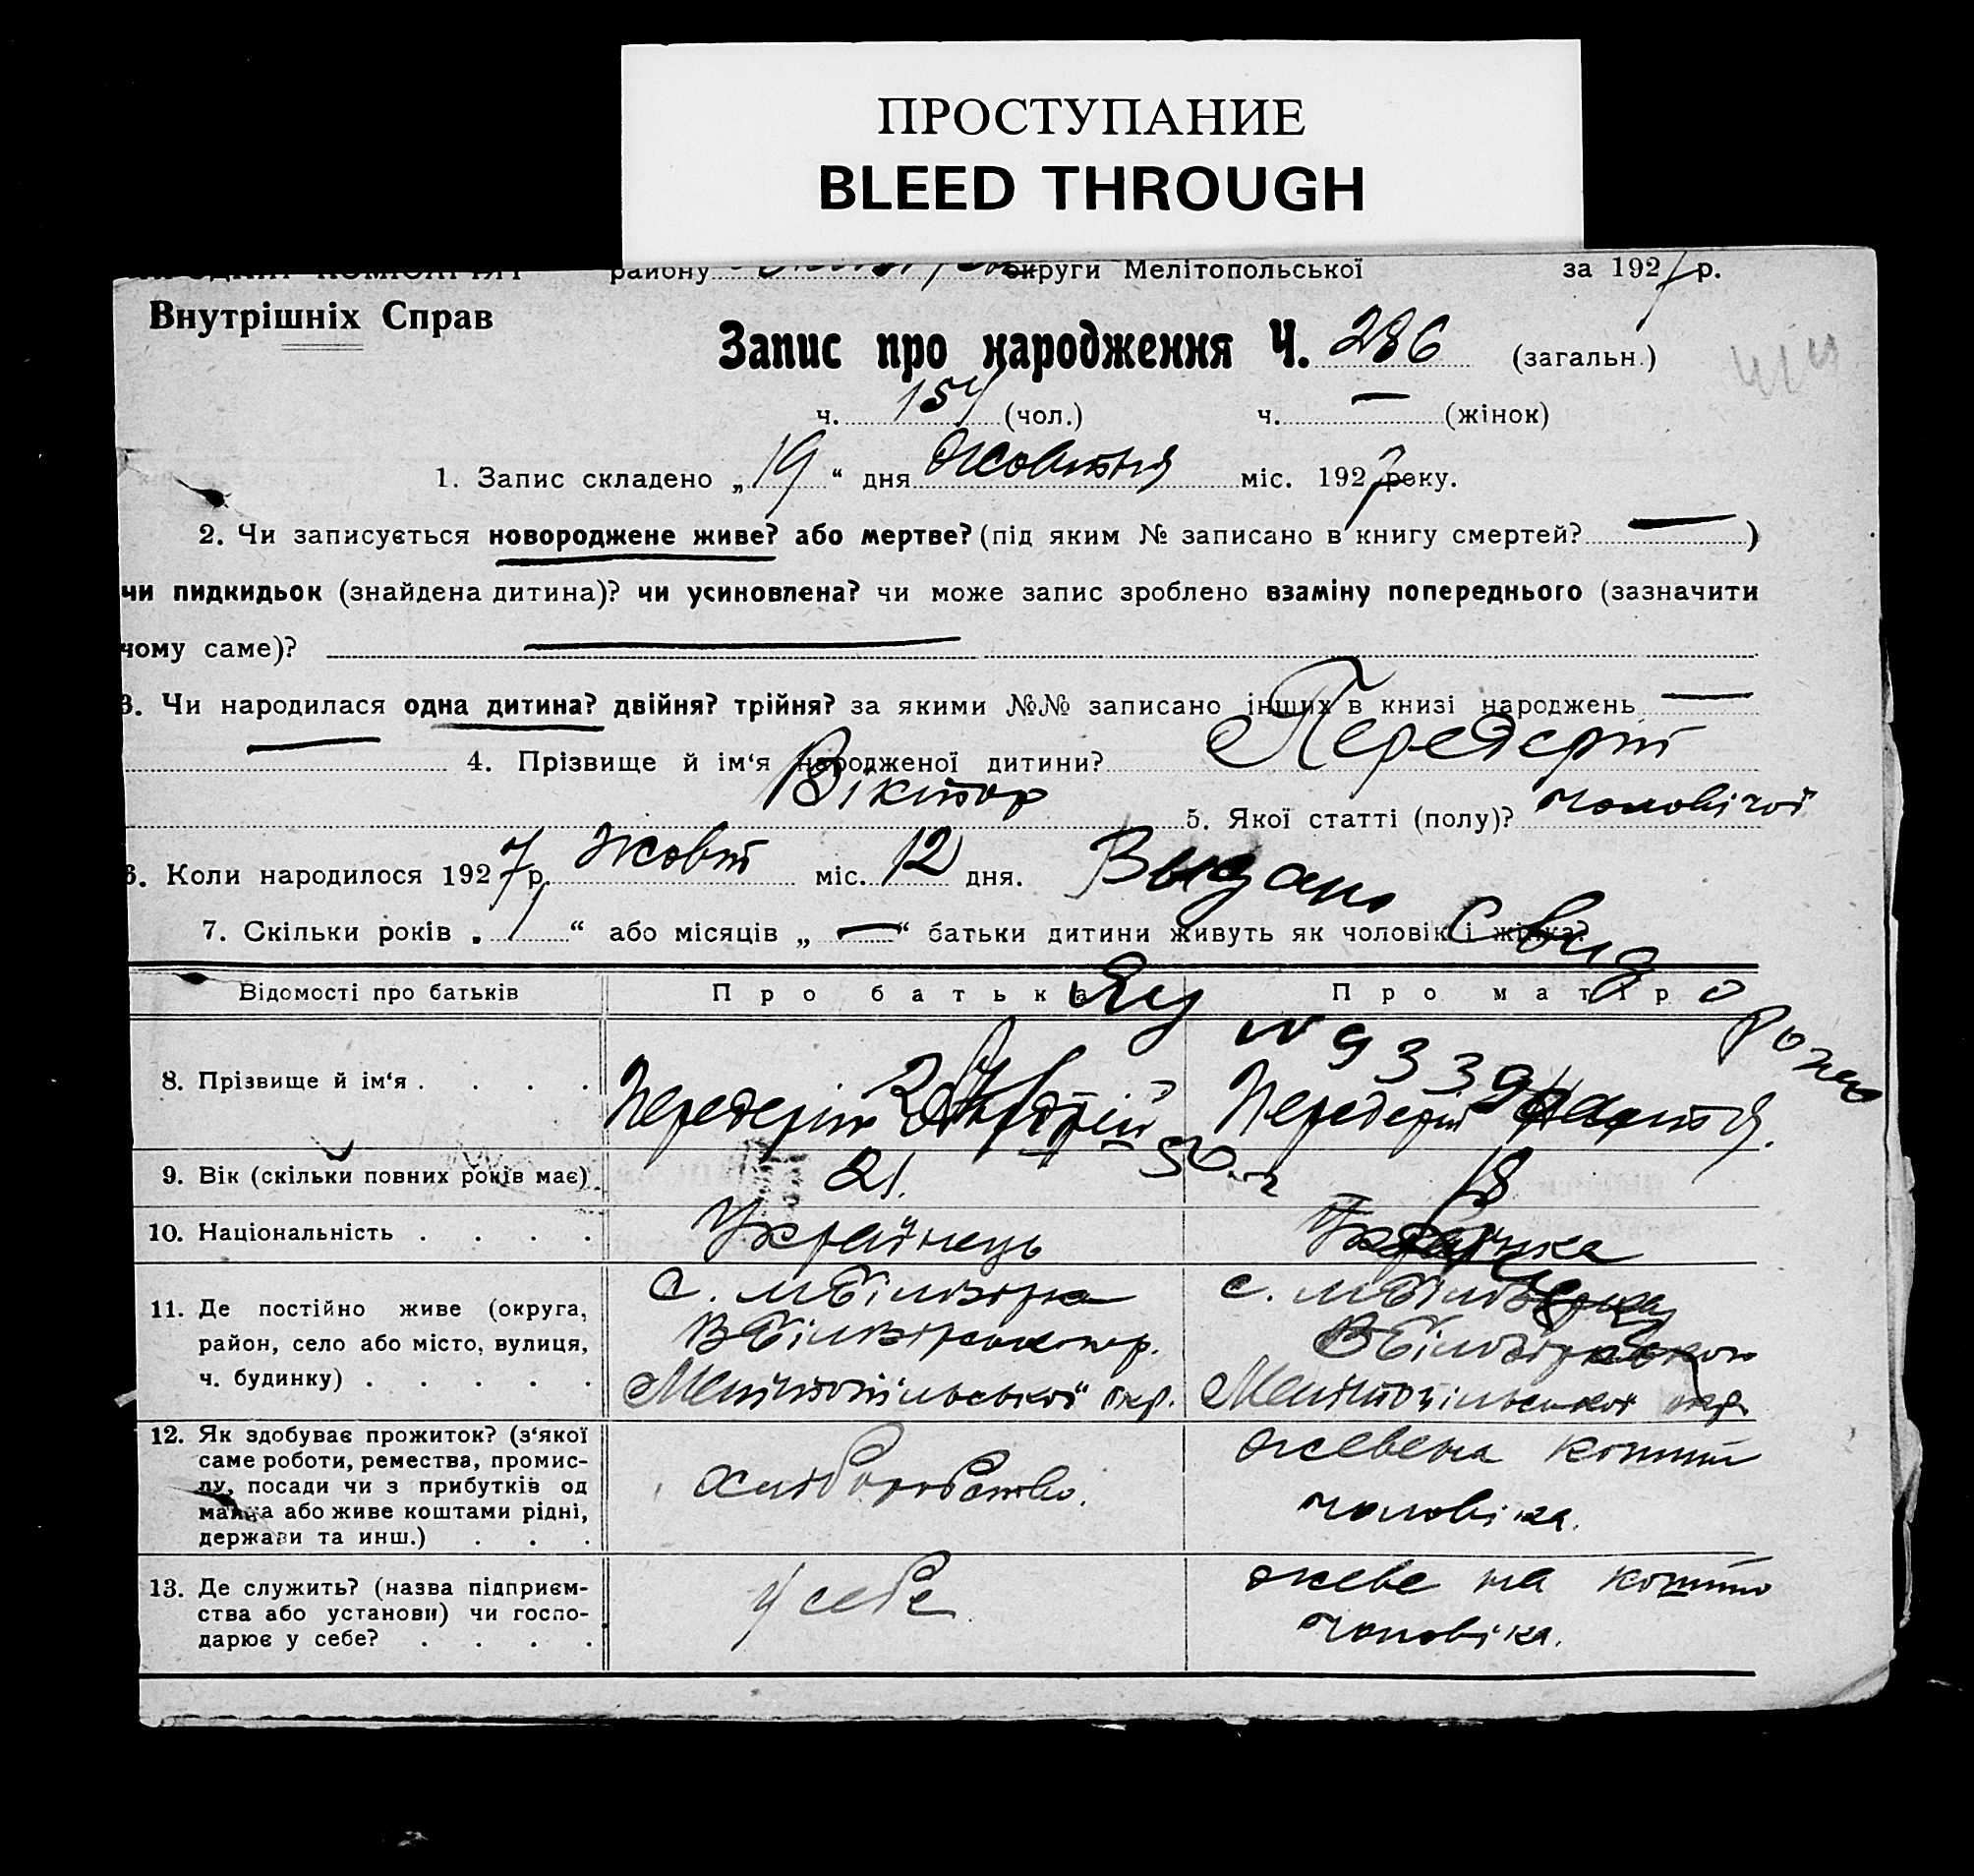 ПРОСТУПАНИЕ
BLEED THROUGH
району округи Мелітопольської за 1927 р.
Внутрішніх Справ
Запис про народження Ч. 286 (загальн.)
ч. 157 (чол.) ч. — (жінок)
1. Запис складено „19“ дня Жовтня міс. 1927 року.
2. Чи записується новороджене живе? або мертве? (під яким № записано в книгу смертей? — )
чи пидкидьок (знайдена дитина)? чи усиновлена? чи може запис зроблено взаміну попереднього (зазначити
чому саме)? —
3. Чи народилася одна дитина? двійня? трійня? за якими №№ записано інших в книзі народжень —
— 4. Прізвище й ім‘я народженої дитини? Передерій
Віктор 5. Якої статті (полу)? чоловічої
6. Коли народилося 1927 р. Жовт міс. 12 дня. Выдано
7. Скільки років „1“ або місяців „—“ батьки дитини живуть як чоловік і жінка?
Свид о рожд
Відомості про батьків Про батька Про матір
№ 9339
8. Прізвище й ім‘я . . . . Передерій Передерій
9. Вік (скільки повних років має) 21. 18
10. Національність . . . . Українець Українка
11. Де постійно живе (округа, с. МБілозірка с. МБілозірка
район, село або місто, вулиця, ВБілозірського р. ВБілозірського
ч. будинку) . . . . . Мелітопільської окр. Мелітопільської окр.
12. Як здобуває прожиток? (з‘якої
саме роботи, ремества, промис-
лу, посади чи з прибутків од
майна або живе коштами рідні,
держави та инш.) . . .
хліборобство.
чоловіка.
13. Де служить? (назва підприєм-
ства або установи) чи госпо-
дарює у себе? . . . .
у себе
живе на кошти
чоловіка.